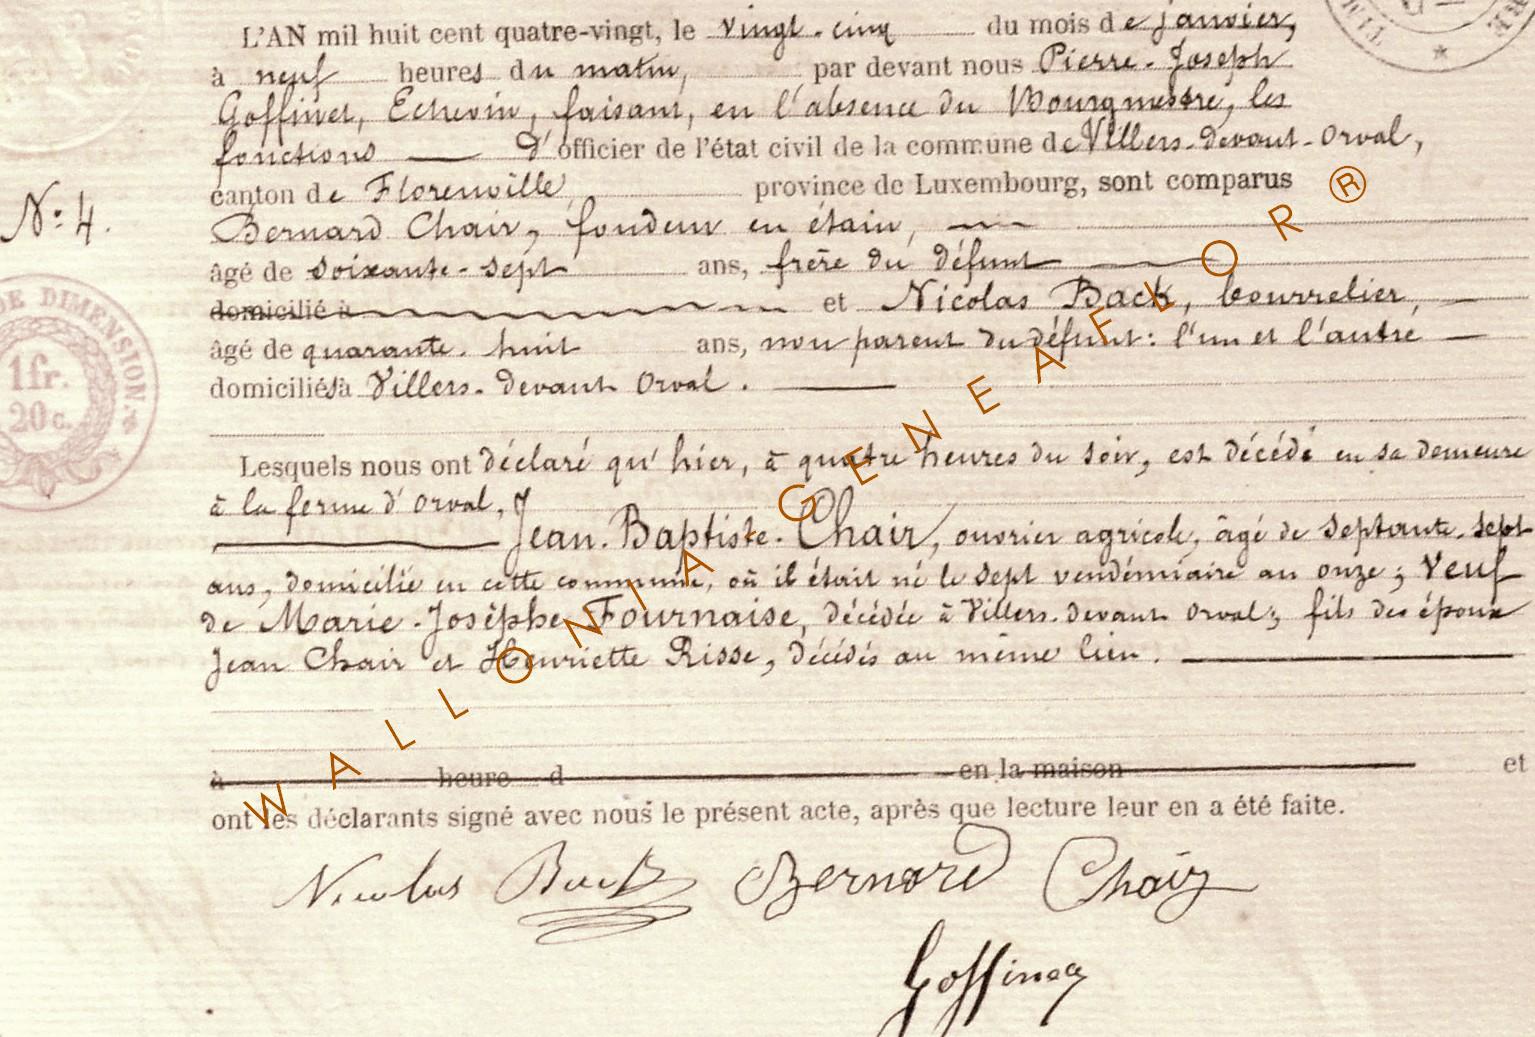 L'AN mil huit cent quatre-vingt, le vingt-cinq du mois de janvier,
à neuf heures du matin, par devant nous Pierre-Joseph
Goffinet, Echevin, faisant, en l'absence du Bourgmestre, les
fonctions d'officier de l'état civil de la commune de Villers-devant-Orval,
canton de Florenville, province de Luxembourg, sont comparus
N° 4.
Bernard Chair, fondeur en étain,
âgé de soixante-sept ans, frère du défunt
domicilié à et Nicolas Back, bourrelier,
âgé de quarante-huit ans, non parent du défunt: l'un et l'autre
domiciliés à Villers-devant Orval.
DE DIMENSION.
1 fr.
20 c.
Lesquels nous ont déclaré qu'hier, à quatre heures du soir, est décédé en sa demeure
à la ferme d'Orval,
Jean-Baptiste-Chair, ouvrier agricole, âgé de septante-sept
ans, domicilié en cette commune, où il était né le sept vendémiaire an onze; veuf
de Marie-Josèphe Fournaise, décédée à Villers-devant Orval; fils des époux
Jean Chair et Henriette Risse, décédés au même lieu.
à heure d en la maison et
ont les déclarants signé avec nous le présent acte, après que lecture leur en a été faite.
Nicolas Back Bernard Chair
Goffinet
WALLONIA GENEAFLOR®